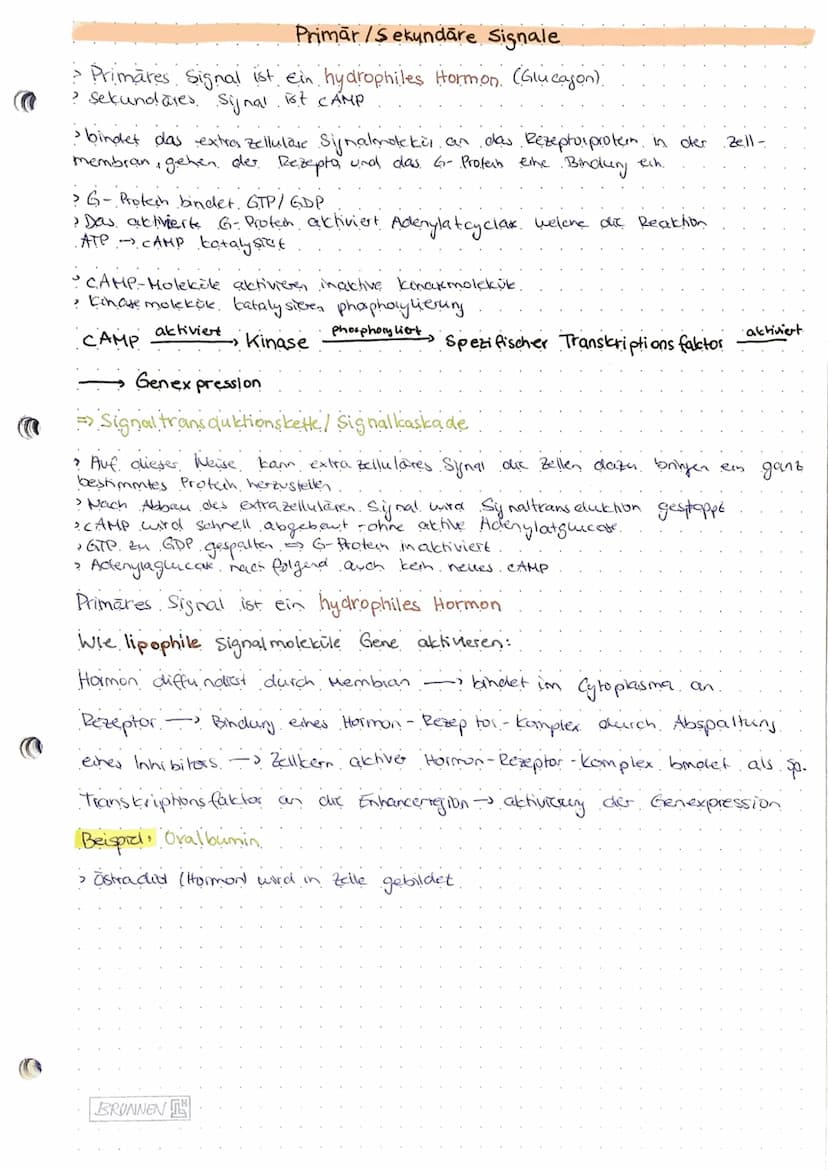 Primär/Sekundäre Signale
> Primäres Signal ist ein hydrophiles Hormon. (Glucagon)
> sekundäres Signal ist cAMP
> bindet das extrazelluläre Signalmolekül an das Rezeptorprotein in der Zell-
membran, gehen der Rezeptor und das G-Protein eine Bindung ein.
> G-Protein bindet GTP/GDP
> Das aktivierte G-Protein aktiviert Adenylatcyclase welche die Reaktion
ATP → cAMP katalysiert
> cAMP-Moleküle aktivieren inaktive Kinasemoleküle.
> Kinasemoleküle katalysieren phosphorylierung
cAMP aktiviert → Kinase phosphoryliert → Spezifischer Transkriptionsfaktor aktiviert
→ Genexpression
=> Signaltransduktionskette/Signalkaskade
> Auf dieser Weise kann extrazelluläres Signal die Zellen dazu bringen ein ganz
bestimmtes Protein herzustellen
> Nach Abbau des extrazellulären Signal wird Signaltransduktion gestoppt
> cAMP wird schnell abgebaut - ohne aktive Adenylatglucase
> GTP zu GDP gespalten => G-Protein inaktiviert
> Adenylaglucase nachfolgend auch kein neues cAMP
Primäres Signal ist ein hydrophiles Hormon
Wie lipophile Signalmoleküle Gene aktivieren:
Hormon diffundiert durch Membran → bindet im Cytoplasma an
Rezeptor → Bindung eines Hormon-Rezeptor-Komplex durch Abspaltung
eines Inhibitors → Zellkern aktiver Hormon-Rezeptor-Komplex bindet als sp.
Transkriptionsfaktor an die Enhancerregion → aktivierung der Genexpression
Beispiel: Ovalbumin
> Östradiol (Hormon) wird in Zelle gebildet
BRUNNEN